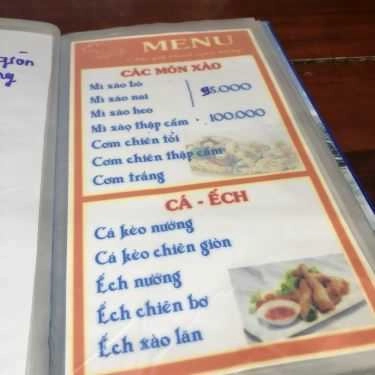 giòn
MENU
CÁC MÓN XÀO
Mì xào bò
Mì xào nai 85.000
Mì xào heo
Mì xào thập cẩm 100.000
Cơm chiên tỏi
Cơm chiên thập cẩm
Cơm trắng
CÁ - ẾCH
Cá kèo nướng
Cá kèo chiên giòn
Ếch nướng
Ếch chiên bơ
Ếch xào lăn